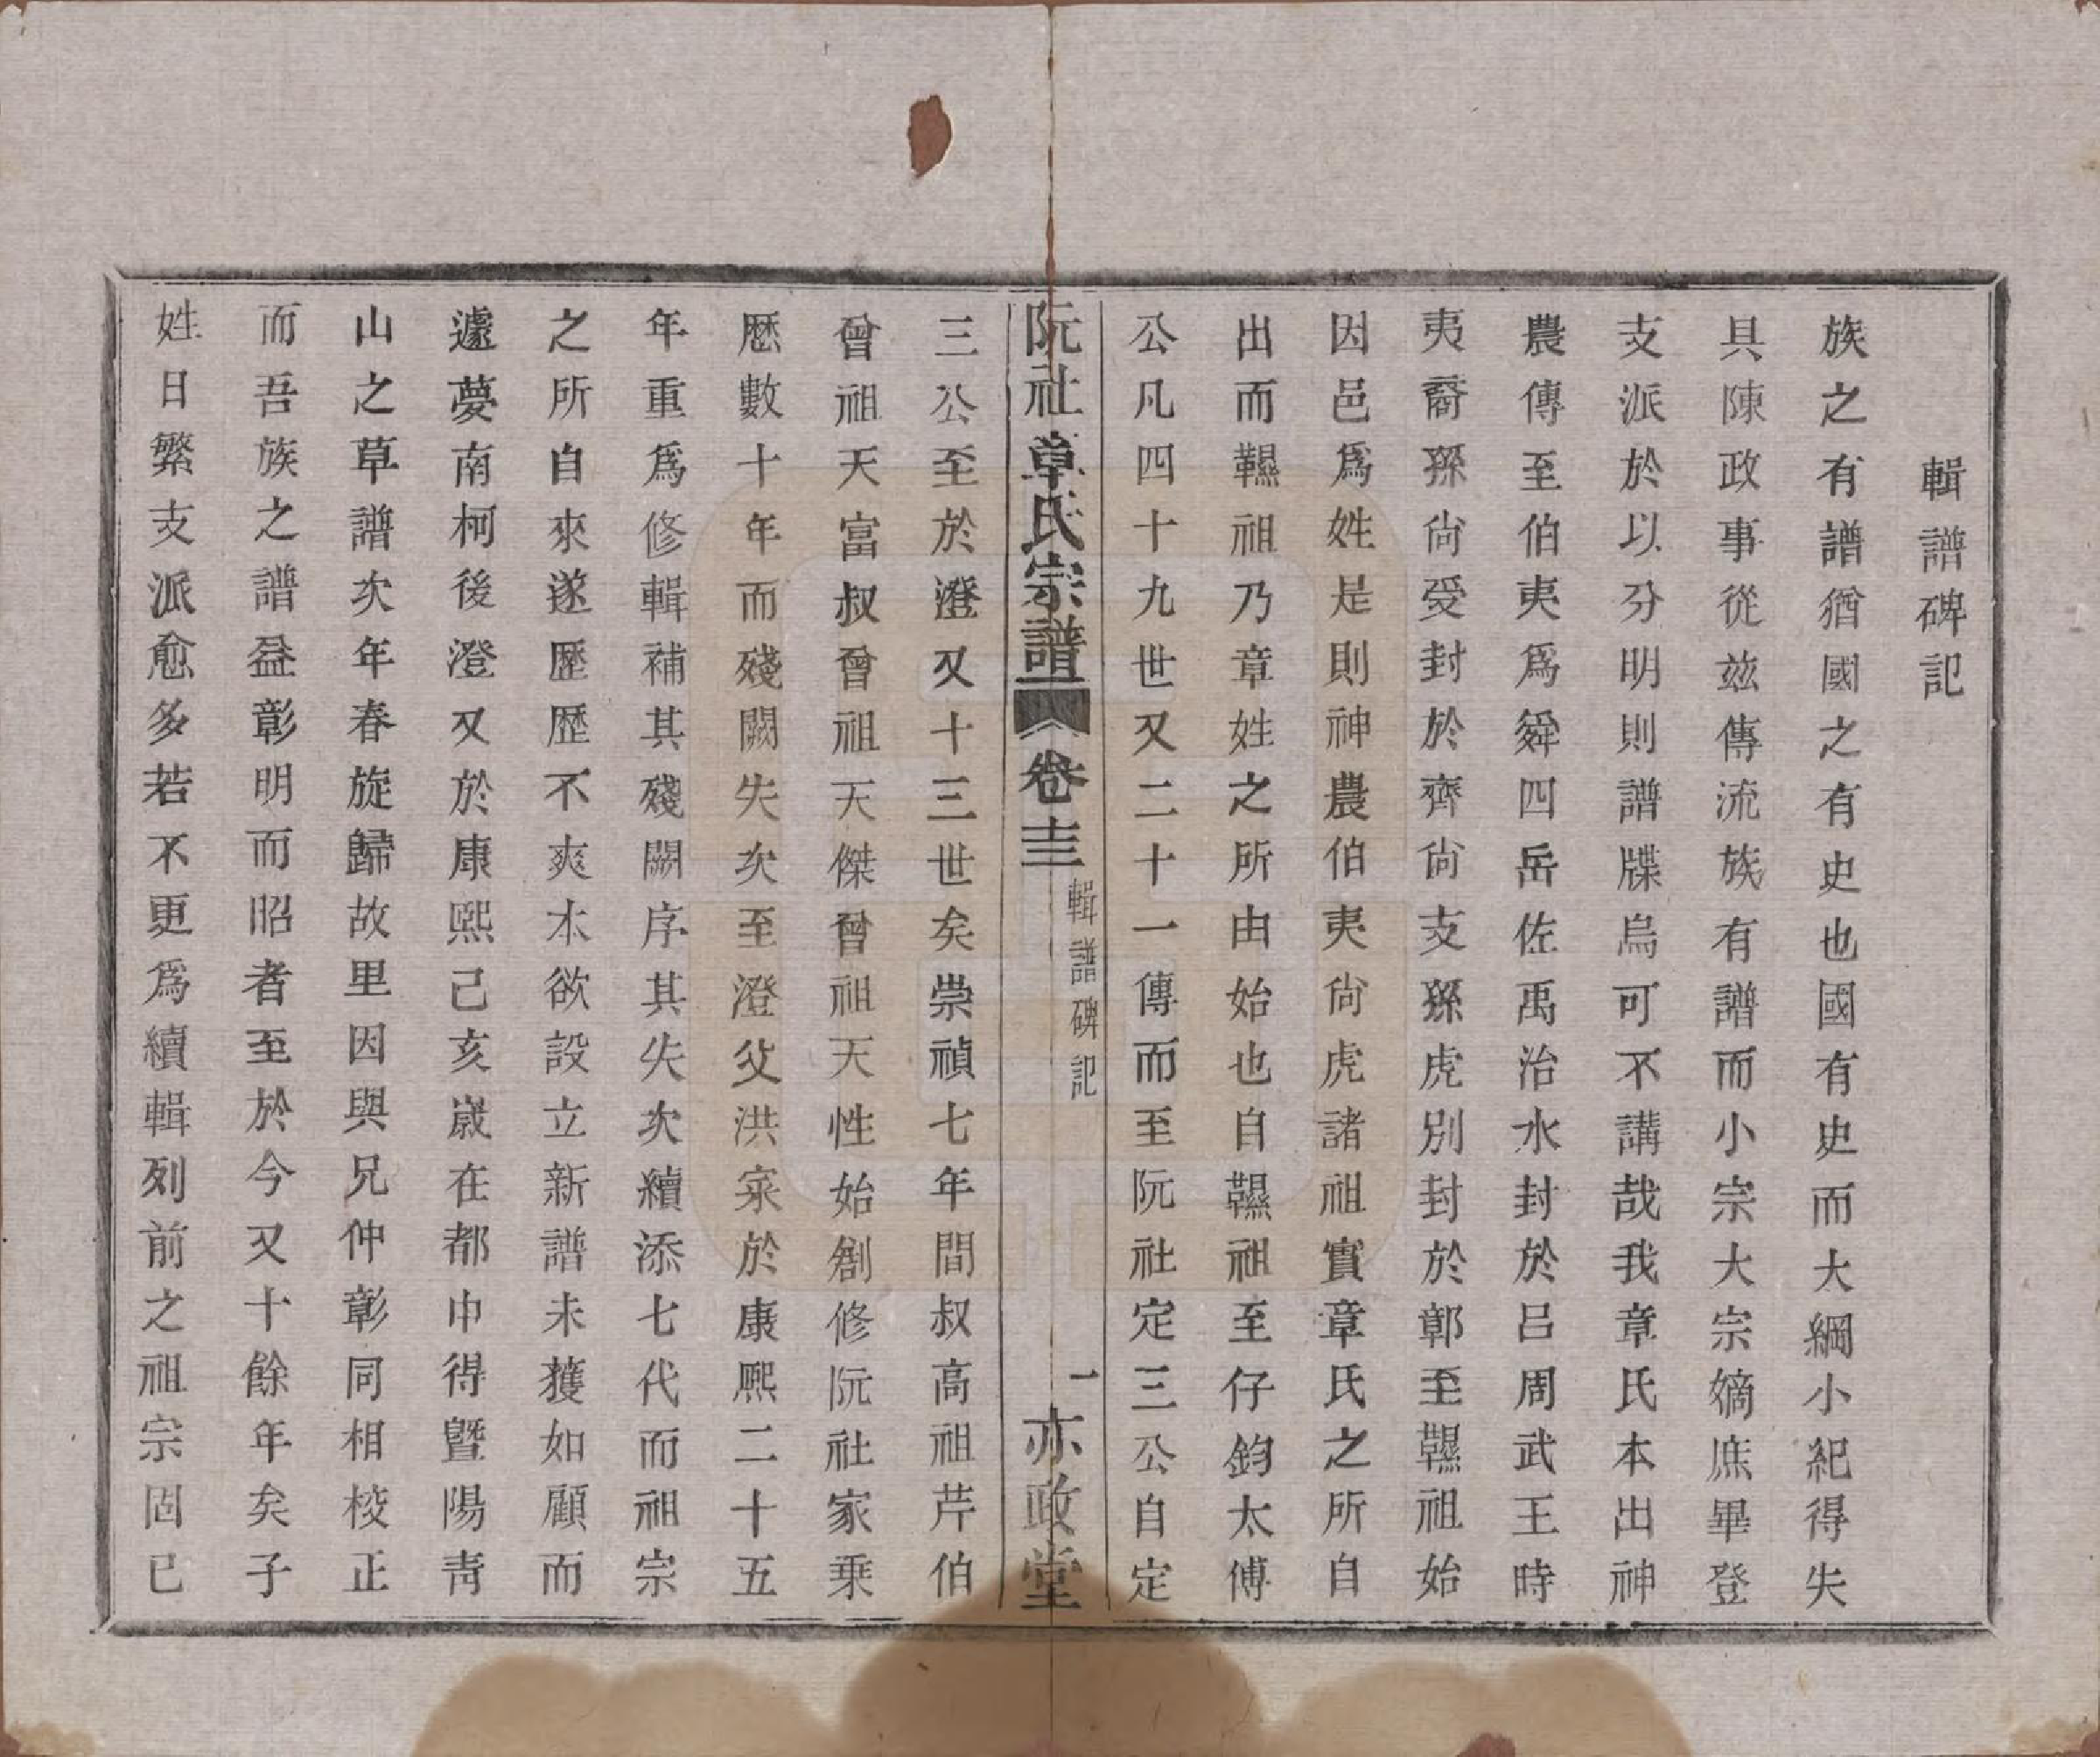 輯譜碑記
族之有譜猶國之有史也國有史而大綱小紀得失
具陳政事從玆傳流族有譜而小宗大宗嫡庶畢登
支派於以分明則譜牒烏可不講哉我章氏本出神
農傳至伯夷爲舜四岳佐禹治水封於呂周武王時
夷裔孫尙受封於齊尙支孫虎別封於鄣至韅祖始
因邑爲姓是則神農伯夷尙虎諸祖實章氏之所自
出而韅祖乃章姓之所由始也自韅祖至仔鈞太傅
公凡四十九世又二十一傳而至阮社定三公自定
阮社章氏宗譜 卷十三 輯譜碑記 一 亦政堂
三公至於澄又十三世矣崇禎七年間叔高祖芹伯
曾祖天富叔曾祖天傑曾祖天性始創修阮社家乗
歷數十年而殘闕失次至澄父洪寀於康熙二十五
年重爲修輯補其殘闕序其失次續添七代而祖宗
之所自來遂歷歷不爽本欲設立新譜未獲如願而
遽夢南柯後澄又於康熙己亥歲在都中得曁陽靑
山之草譜次年春旋歸故里因與兄仲彰同相校正
而吾族之譜益彰明而昭者至於今又十餘年矣子
姓日繁支派愈多若不更爲續輯列前之祖宗固已